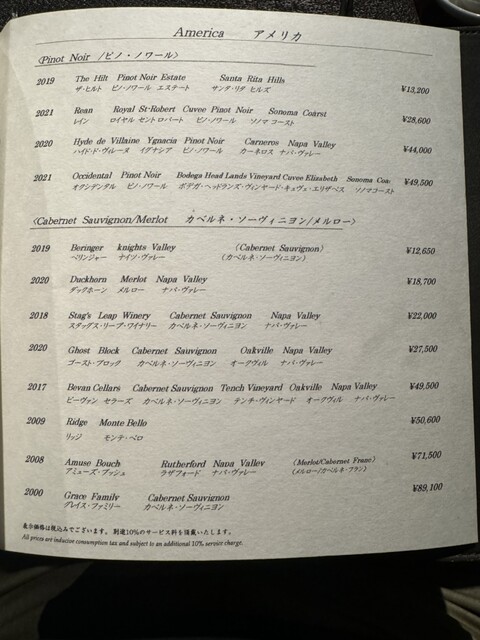 America アメリカ
〈Pinot Noir /ピノ・ノワール〉
2019 The Hilt Pinot Noir Estate Santa Rita Hills ¥13,200
ザ・ヒルト ピノ・ノワール エステート サンタ・リタ ヒルズ
2021 Rean Royal St-Robert Cuvee Pinot Noir Sonoma Coarst ¥28,600
レイン ロイヤル セントロバート ピノ・ノワール ソノマ コースト
2020 Hyde de Villaine Ygnacia Pinot Noir Carneros Napa Valley ¥44,000
ハイド・ド・ヴィレーヌ イグナシア ピノ・ノワール カーネロス ナパ・ヴァレー
2021 Occidental Pinot Noir Bodega Head Lands Vineyard Cuvee Elizabeth Sonoma Coa: ¥49,500
オクシデンタル ピノ・ノワール ボデガ・ヘッドランズ・ヴィンヤード・キュヴェ・エリザベス ソノマコースト
〈Cabernet Sauvignon/Merlot カベルネ・ソーヴィニヨン/メルロー〉
2019 Beringer knights Valley (Cabernet Sauvignon) ¥12,650
ベリンジャー ナイツ・ヴァレー (カベルネ・ソーヴィニヨン)
2020 Duckhorn Merlot Napa Valley ¥18,700
ダックホーン メルロー ナパ・ヴァレー
2018 Stag's Leap Winery Cabernet Sauvignon Napa Valley ¥22,000
スタッグス・リープ・ワイナリー カベルネ・ソーヴィニヨン ナパ・ヴァレー
2020 Ghost Block Cabernet Sauvignon Oakville Napa Valley ¥27,500
ゴースト・ブロック カベルネ・ソーヴィニヨン オークヴィル ナパ・ヴァレー
2017 Bevan Cellars Cabernet Sauvignon Tench Vineyard Oakville Napa Valley ¥49,500
ビーヴァン セラーズ カベルネ・ソーヴィニヨン テンチ・ヴィンヤード オークヴィル ナパ・ヴァレー
2009 Ridge Monte Bello ¥50,600
リッジ モンテ・ベロ
2008 Amuse Bouch Rutherford Napa Valley (Merlot/Cabernet Franc) ¥71,500
アミューズ・ブッシュ ラザフォード ナパ・ヴァレー (メルロー/カベルネ・フラン)
2000 Grace Family Cabernet Sauvignon ¥89,100
グレイス・ファミリー カベルネ・ソーヴィニヨン
表示価格は税込みでございます。別途10%のサービス料を頂戴いたします。
All prices are inclusive consumption tax and subject to an additional 10% service charge.